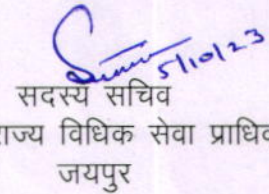 5/10/23
सदस्य सचिव
राज्य विधिक सेवा प्राधि
जयपुर